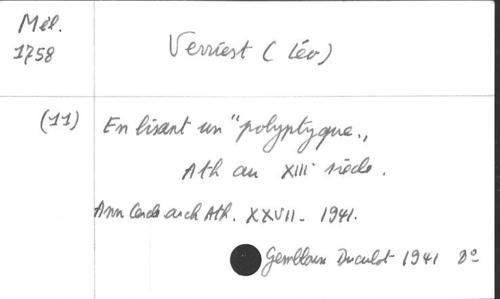 Mél.
1758
Verriest (Léo)
(11) En lisant un "polyptyque",
Ath au XIIIe siècle.
Ann Cercle arch Ath. XXVII - 1941.
Gembloux Duculot 1941 8°